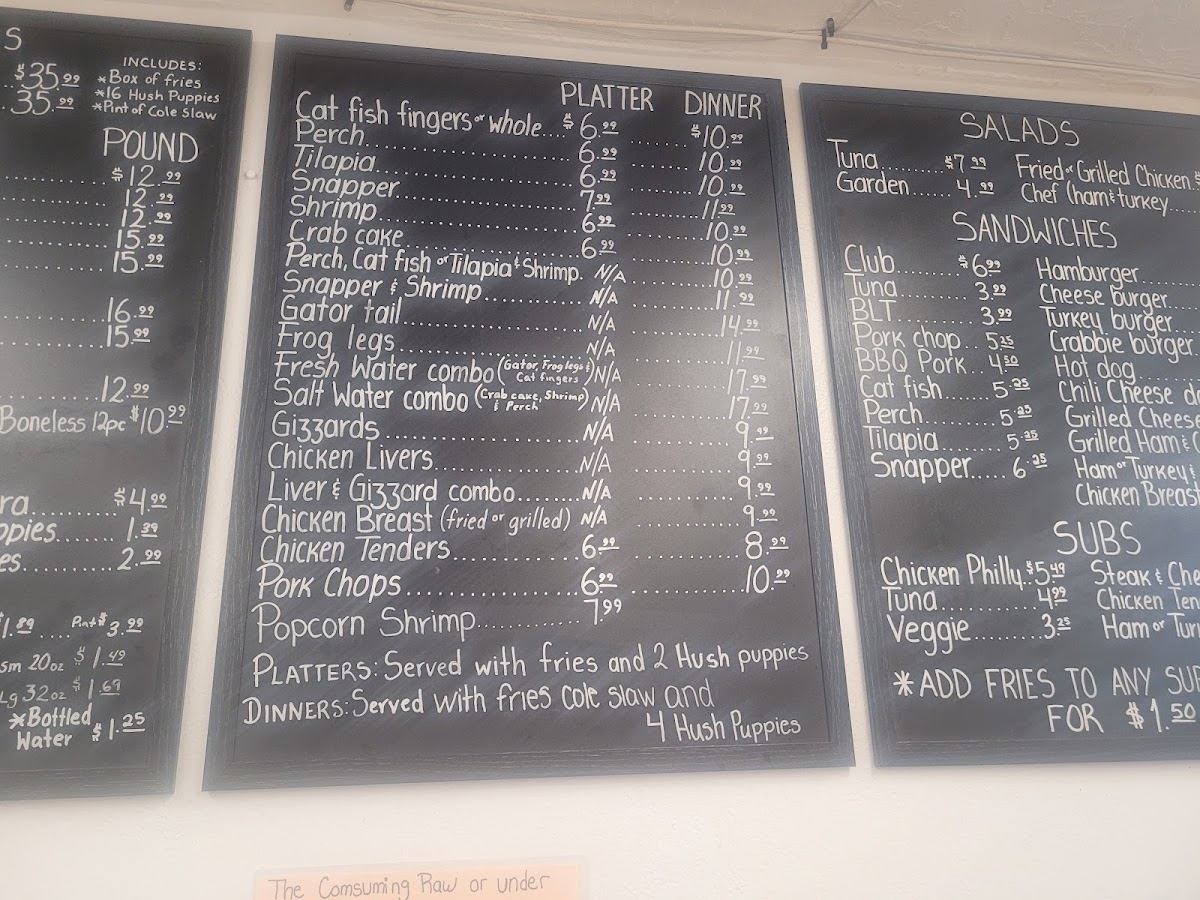 S
$35.99
35.99
INCLUDES:
*Box of fries
*16 Hush Puppies
*Pint of Cole Slaw
POUND
$12.99
12.99
12.99
15.99
15.99
16.99
15.99
12.99
Boneless 12pc $10.99
ra $4.99
ppies 1.39
es 2.99
$1.89 Pint $3.99
sm 20oz $1.49
Lg 32oz $1.69
*Bottled Water $1.25
PLATTER DINNER
Cat fish fingers or whole $6.99 $10.99
Perch 6.99 10.99
Tilapia 6.99 10.99
Snapper 7.99 11.99
Shrimp 6.99 10.99
Crab cake 6.99 10.99
Perch, Cat fish or Tilapia & Shrimp. N/A 10.99
Snapper & Shrimp N/A 11.99
Gator tail N/A 14.99
Frog legs N/A 11.99
Fresh Water combo (Gator, Frog legs & Cat fingers) N/A 17.99
Salt Water combo (Crab cake, Shrimp & Perch) N/A 17.99
Gizzards N/A 9.99
Chicken Livers N/A 9.99
Liver & Gizzard combo N/A 9.99
Chicken Breast (fried or grilled) N/A 9.99
Chicken Tenders 6.99 8.99
Pork Chops 6.99 10.99
Popcorn Shrimp 7.99
PLATTERS: Served with fries and 2 Hush puppies
DINNERS: Served with fries cole slaw and
4 Hush Puppies
SALADS
Tuna $7.99 Fried or Grilled Chicken $
Garden 4.99 Chef (ham & turkey
SANDWICHES
Club $6.99 Hamburger
Tuna 3.99 Cheese burger
BLT 3.99 Turkey burger
Pork chop 5.25 Crabbie burger
BBQ Pork 4.50 Hot dog
Cat fish 5.25 Chili Cheese do
Perch 5.25 Grilled Cheese
Tilapia 5.25 Grilled Ham &
Snapper 6.25 Ham or Turkey &
Chicken Breas
SUBS
Chicken Philly $5.49 Steak & Che
Tuna 4.99 Chicken Ten
Veggie 3.25 Ham or Tur
*ADD FRIES TO ANY SU
FOR $1.50
The Comsuming Raw or under